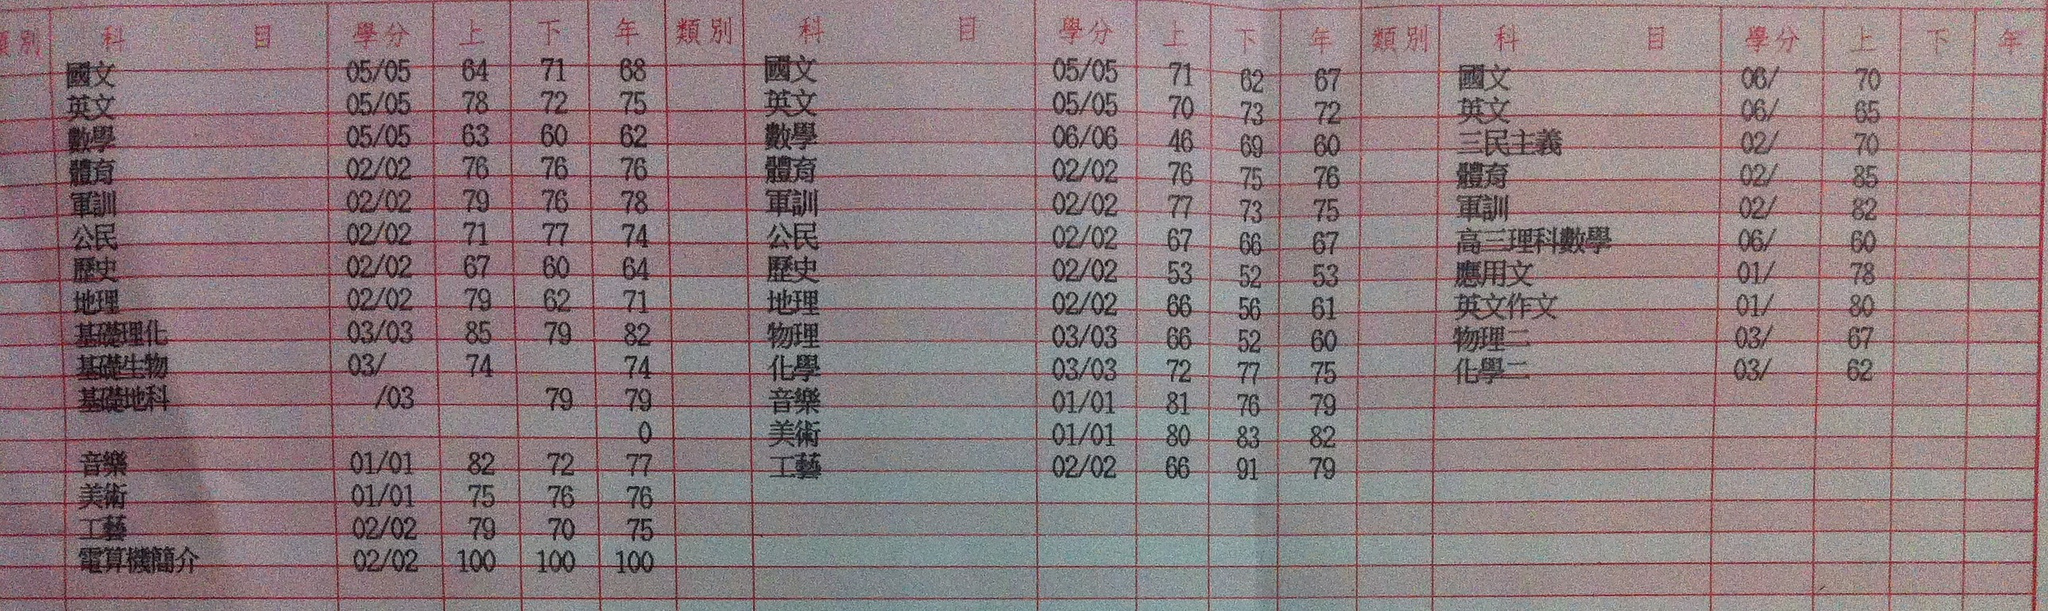 類別 科 目 學分 上 下 年 類別 科 目 學分 上 下 年 類別 科 目 學分 上 下 年
國文 05/05 64 71 68 國文 05/05 71 62 67 國文 06/ 70
英文 05/05 78 72 75 英文 05/05 70 73 72 英文 06/ 65
數學 05/05 63 60 62 數學 06/06 46 69 60 三民主義 02/ 70
體育 02/02 76 76 76 體育 02/02 76 75 76 體育 02/ 85
軍訓 02/02 79 76 78 軍訓 02/02 77 73 75 軍訓 02/ 82
公民 02/02 71 77 74 公民 02/02 67 66 67 高三理科數學 06/ 60
歷史 02/02 67 60 64 歷史 02/02 53 52 53 應用文 01/ 78
地理 02/02 79 62 71 地理 02/02 66 56 61 英文作文 01/ 80
基礎理化 03/03 85 79 82 物理 03/03 66 52 60 物理二 03/ 67
基礎生物 03/ 74 74 化學 03/03 72 77 75 化學二 03/ 62
基礎地科 /03 79 79 音樂 01/01 81 76 79
0 美術 01/01 80 83 82
音樂 01/01 82 72 77 工藝 02/02 66 91 79
美術 01/01 75 76 76
工藝 02/02 79 70 75
電算機簡介 02/02 100 100 100